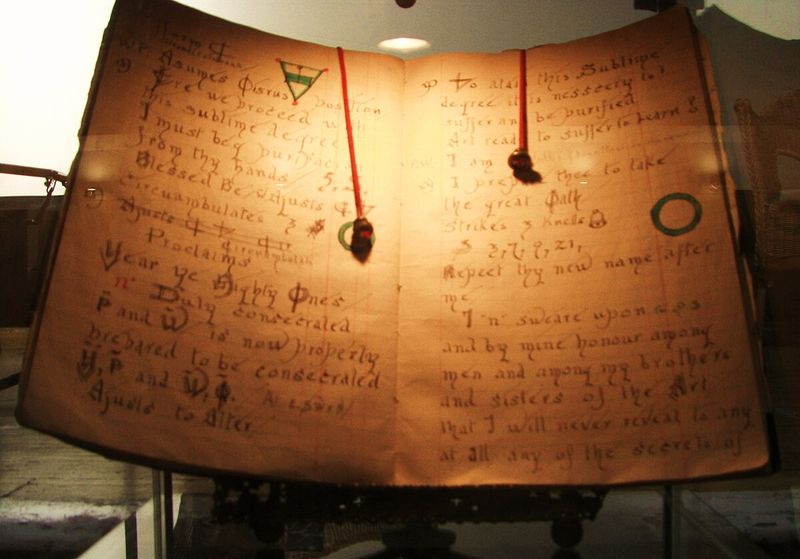 Asumes Osirus position
Eret we proceed with
this sublime degree
I must beg purification
from thy hands
Blessed Be Adjusts
circumambulates 3
Ajusts
circumambulate
Proclaims
Hear ye Mighty Ones
"n" Duly consecrated
P and W is now properly
prepared to be consecrated
H, P and W, Q.
Ajusts to Alter.
To atain this Sublime
degree it is nesscery to
suffer and be purified
Art ready to suffer to Learn
I am
I prepare thee to take
the great Oath
Strikes 3 Knells
3, 7, 9, 21,
Repeet thy new name after
me
I "n" sweare upon
and by mine honour among
men and among my brothers
and sisters of the Art
that I will never reveal to any
at all any of the secrets of